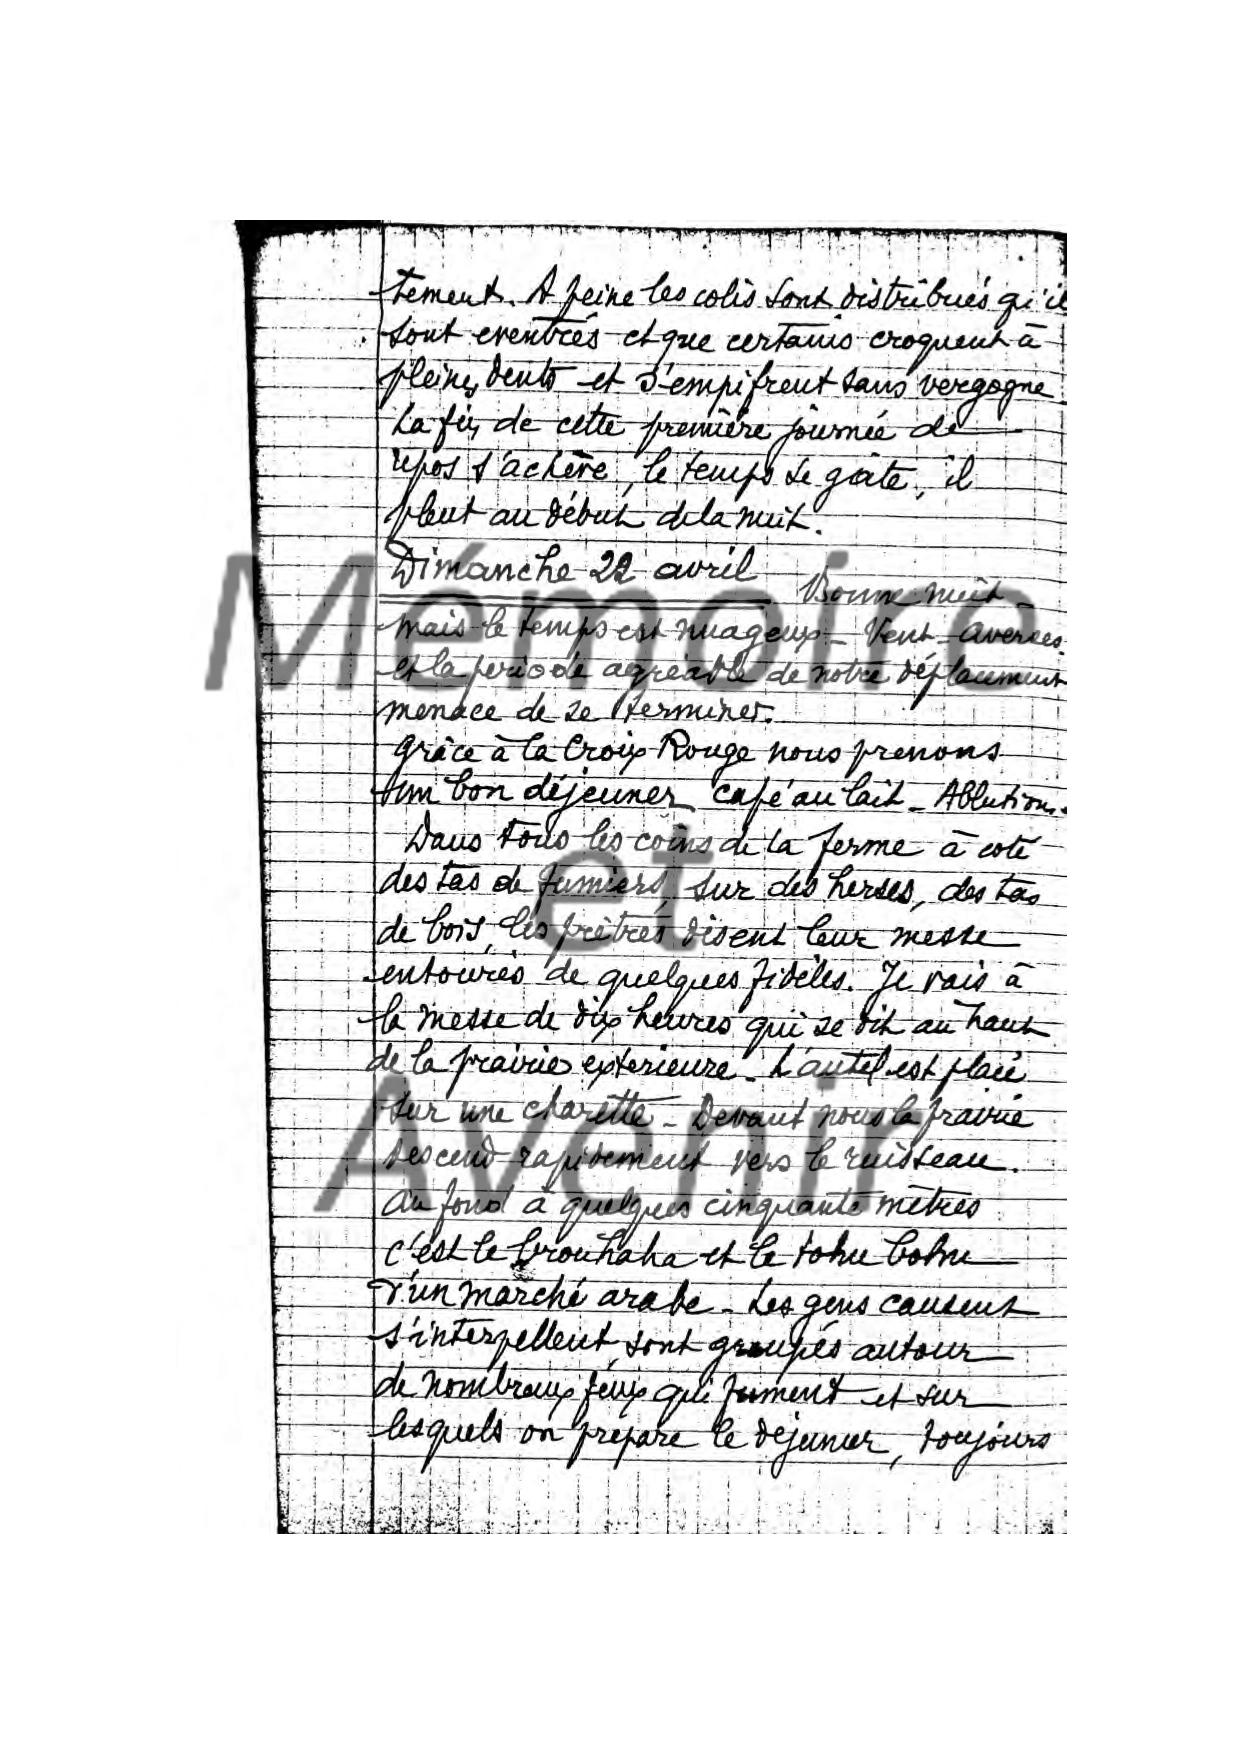 tement. A peine les colis sont distribués qu'il
sont eventrés et que certains croquent à
pleines dents et s'empifrent sans vergogne.
La fin de cette première journée de
repos s'achève, le temps se gâte, il
pleut au début de la nuit.
Dimanche 22 avril
Bonne nuit
mais le temps est nuageux - Vent - averses.
et la periode agréable de notre déplacement
menace de se terminer.
Grâce à la Croix Rouge nous prenons
un bon déjeuner café au lait - Ablutions.
Dans tous les coins de la ferme à coté
des tas de fumiers, sur des herses, des tas
de bois, les prêtres disent leur messe
entourés de quelques fidèles. Je vais à
la messe de dix heures qui se dit au haut
de la prairie exterieure - L'autel est placé
sur une charette - Devant nous la prairie
descend rapidement vers le ruisseau.
Au fond à quelques cinquante mètres
c'est le brouhaha et le tohu bohu
d'un marché arabe - Les gens causent
s'interpellent, sont groupés autour
de nombreux feux qui fument et sur
lesquels on prépare le déjeuner, toujours
Mémoire
et
Avenir